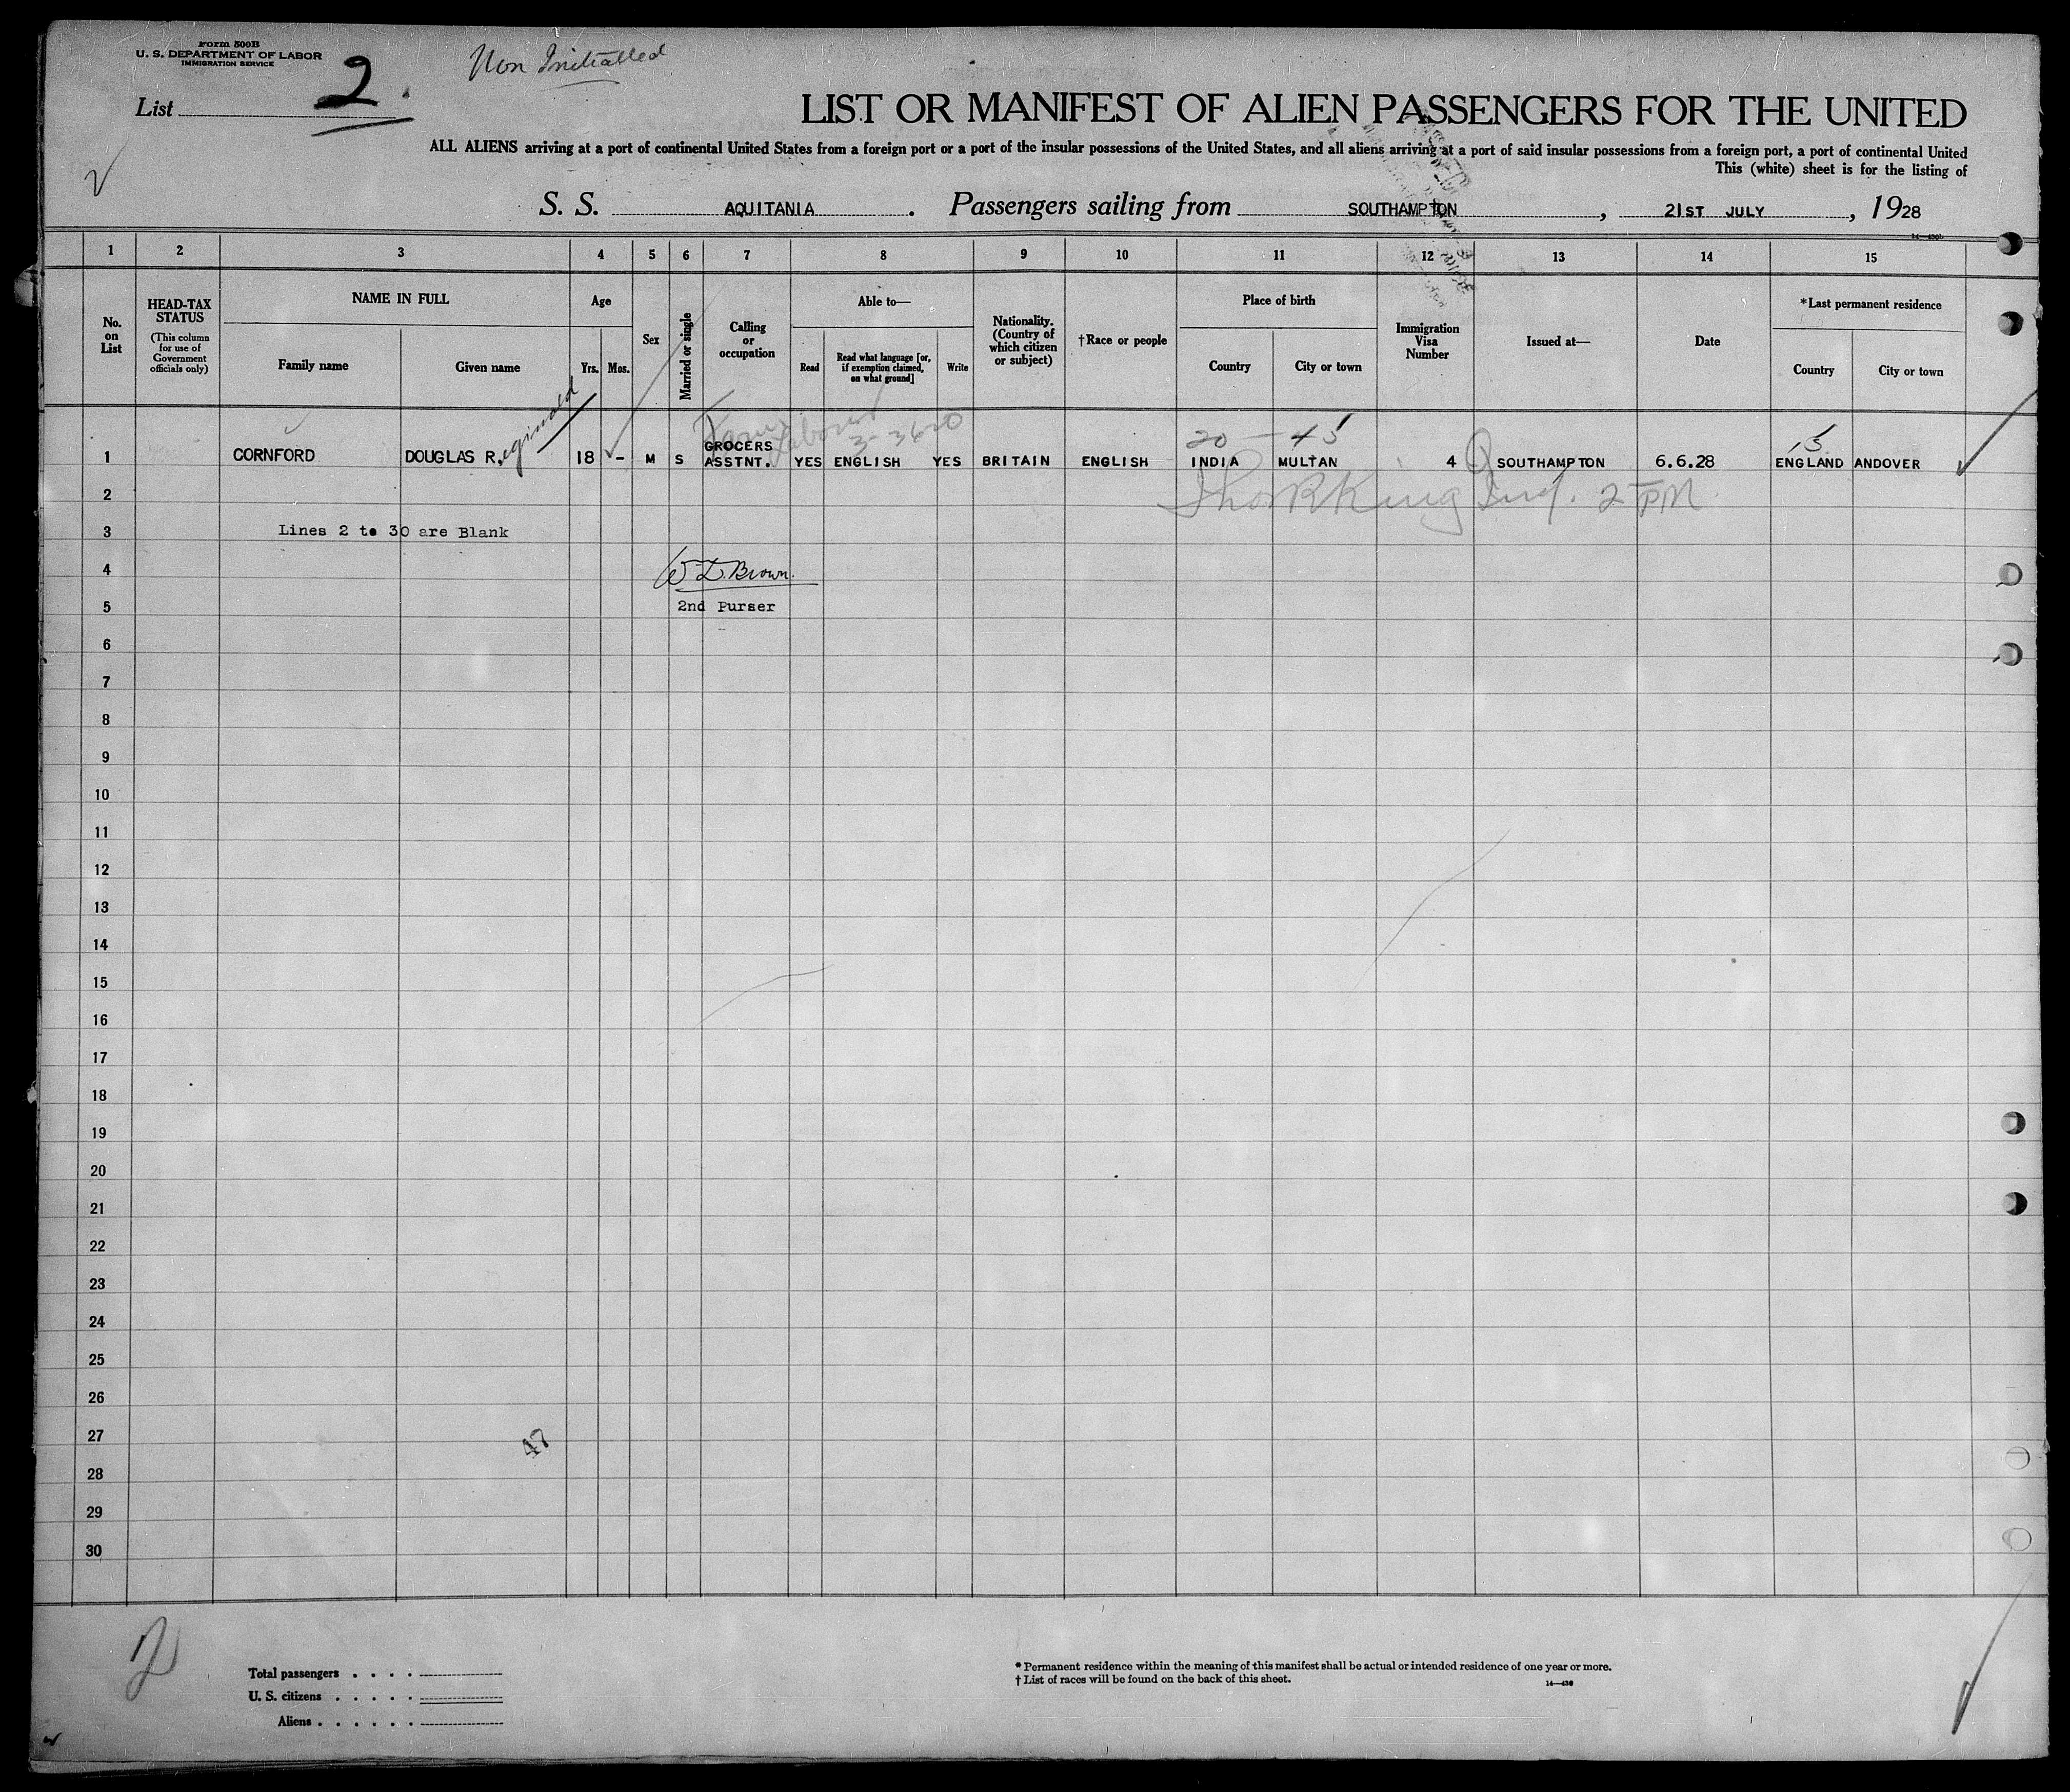 Form 500B
U. S. DEPARTMENT OF LABOR
IMMIGRATION SERVICE
Non Initialled
List 2
LIST OR MANIFEST OF ALIEN PASSENGERS FOR THE UNITED
ALL ALIENS arriving at a port of continental United States from a foreign port or a port of the insular possessions of the United States, and all aliens arriving at a port of said insular possessions from a foreign port, a port of continental United
This (white) sheet is for the listing of
S. S. AQUITANIA . Passengers sailing from SOUTHAMPTON , 21ST JULY , 1928
1 2 3 4 5 6 7 8 9 10 11 12 13 14 15
No. on List
HEAD-TAX STATUS
(This column for use of Government officials only)
NAME IN FULL
Family name
Given name
Age
Yrs.
Mos.
Sex
Married or single
Calling or occupation
Able to—
Read
Read what language [or, if exemption claimed, on what ground]
Write
Nationality. (Country of which citizen or subject)
†Race or people
Place of birth
Country
City or town
Immigration Visa Number
Issued at—
Date
*Last permanent residence
Country
City or town
3-3620
20 — 45
15
1 CORNFORD DOUGLAS R.eginald 18 - M S GROCERS ASSTNT. YES ENGLISH YES BRITAIN ENGLISH INDIA MULTAN 4 SOUTHAMPTON 6.6.28 ENGLAND ANDOVER
2
2 PM
3 Lines 2 to 30 are Blank
4 W L. Brown.
5 2nd Purser
6
7
8
9
10
11
12
13
14
15
16
17
18
19
20
21
22
23
24
25
26
27
47
28
29
30
2
Total passengers . . . .
U. S. citizens . . . . .
Aliens . . . . . .
* Permanent residence within the meaning of this manifest shall be actual or intended residence of one year or more.
† List of races will be found on the back of this sheet.
14—430